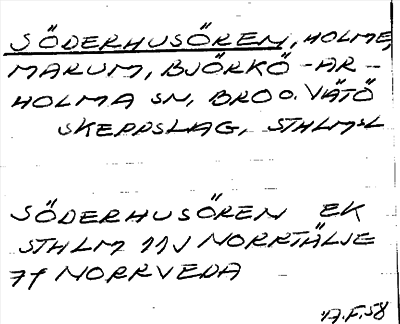 SÖDERHUSÖREN, HOLME,
MARUM, BJÖRKÖ-AR-
HOLMA SN, BRO O. VÄTÖ
SKEPPSLAG, STHLMSL
SÖDERHUSÖREN EK
STHLM 11J NORRTÄLJE
7f NORRVEDA
17.F.58